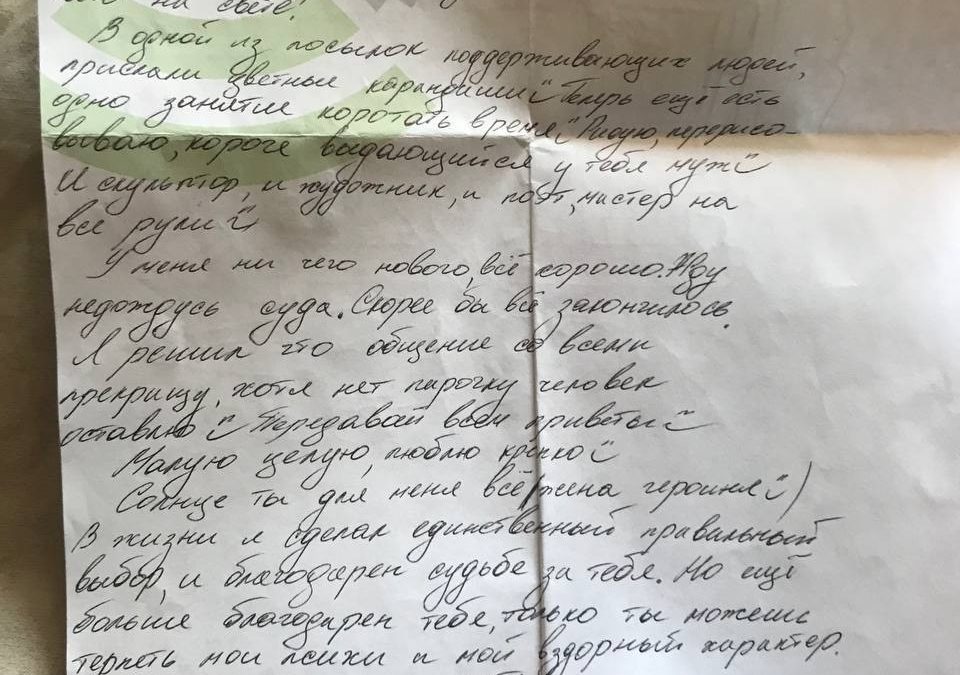 на свете!
В одной из посылок поддерживающих людей,
прислали цветные карандаши ¨ Теперь ещё есть
одно занятие коротать время ¨ Рисую, перерисо-
вываю, короче выдающийся у тебя муж ¨
И скульптор, и художник, и поэт, мастер на
все руки ¨
У меня ни чего нового, всё хорошо. Жду
недождусь суда. Скорее бы всё закончилось.
Я решил что общение со всеми
прекращу, хотя нет парочку человек
оставлю ¨ Передавай всем приветы ¨
Малую целую, люблю крепко ¨
Солнце ты для меня всё (жена героиня ¨)
В жизни я сделал единственный правильный
выбор, и благодарен судьбе за тебя. Но ещё
больше благодарен тебе, только ты можешь
терпеть мои психи и мой вздорный характер.